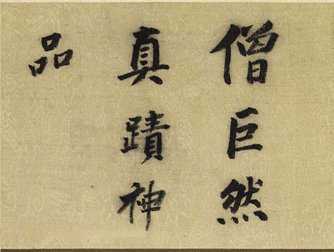 僧巨然
真蹟神
品